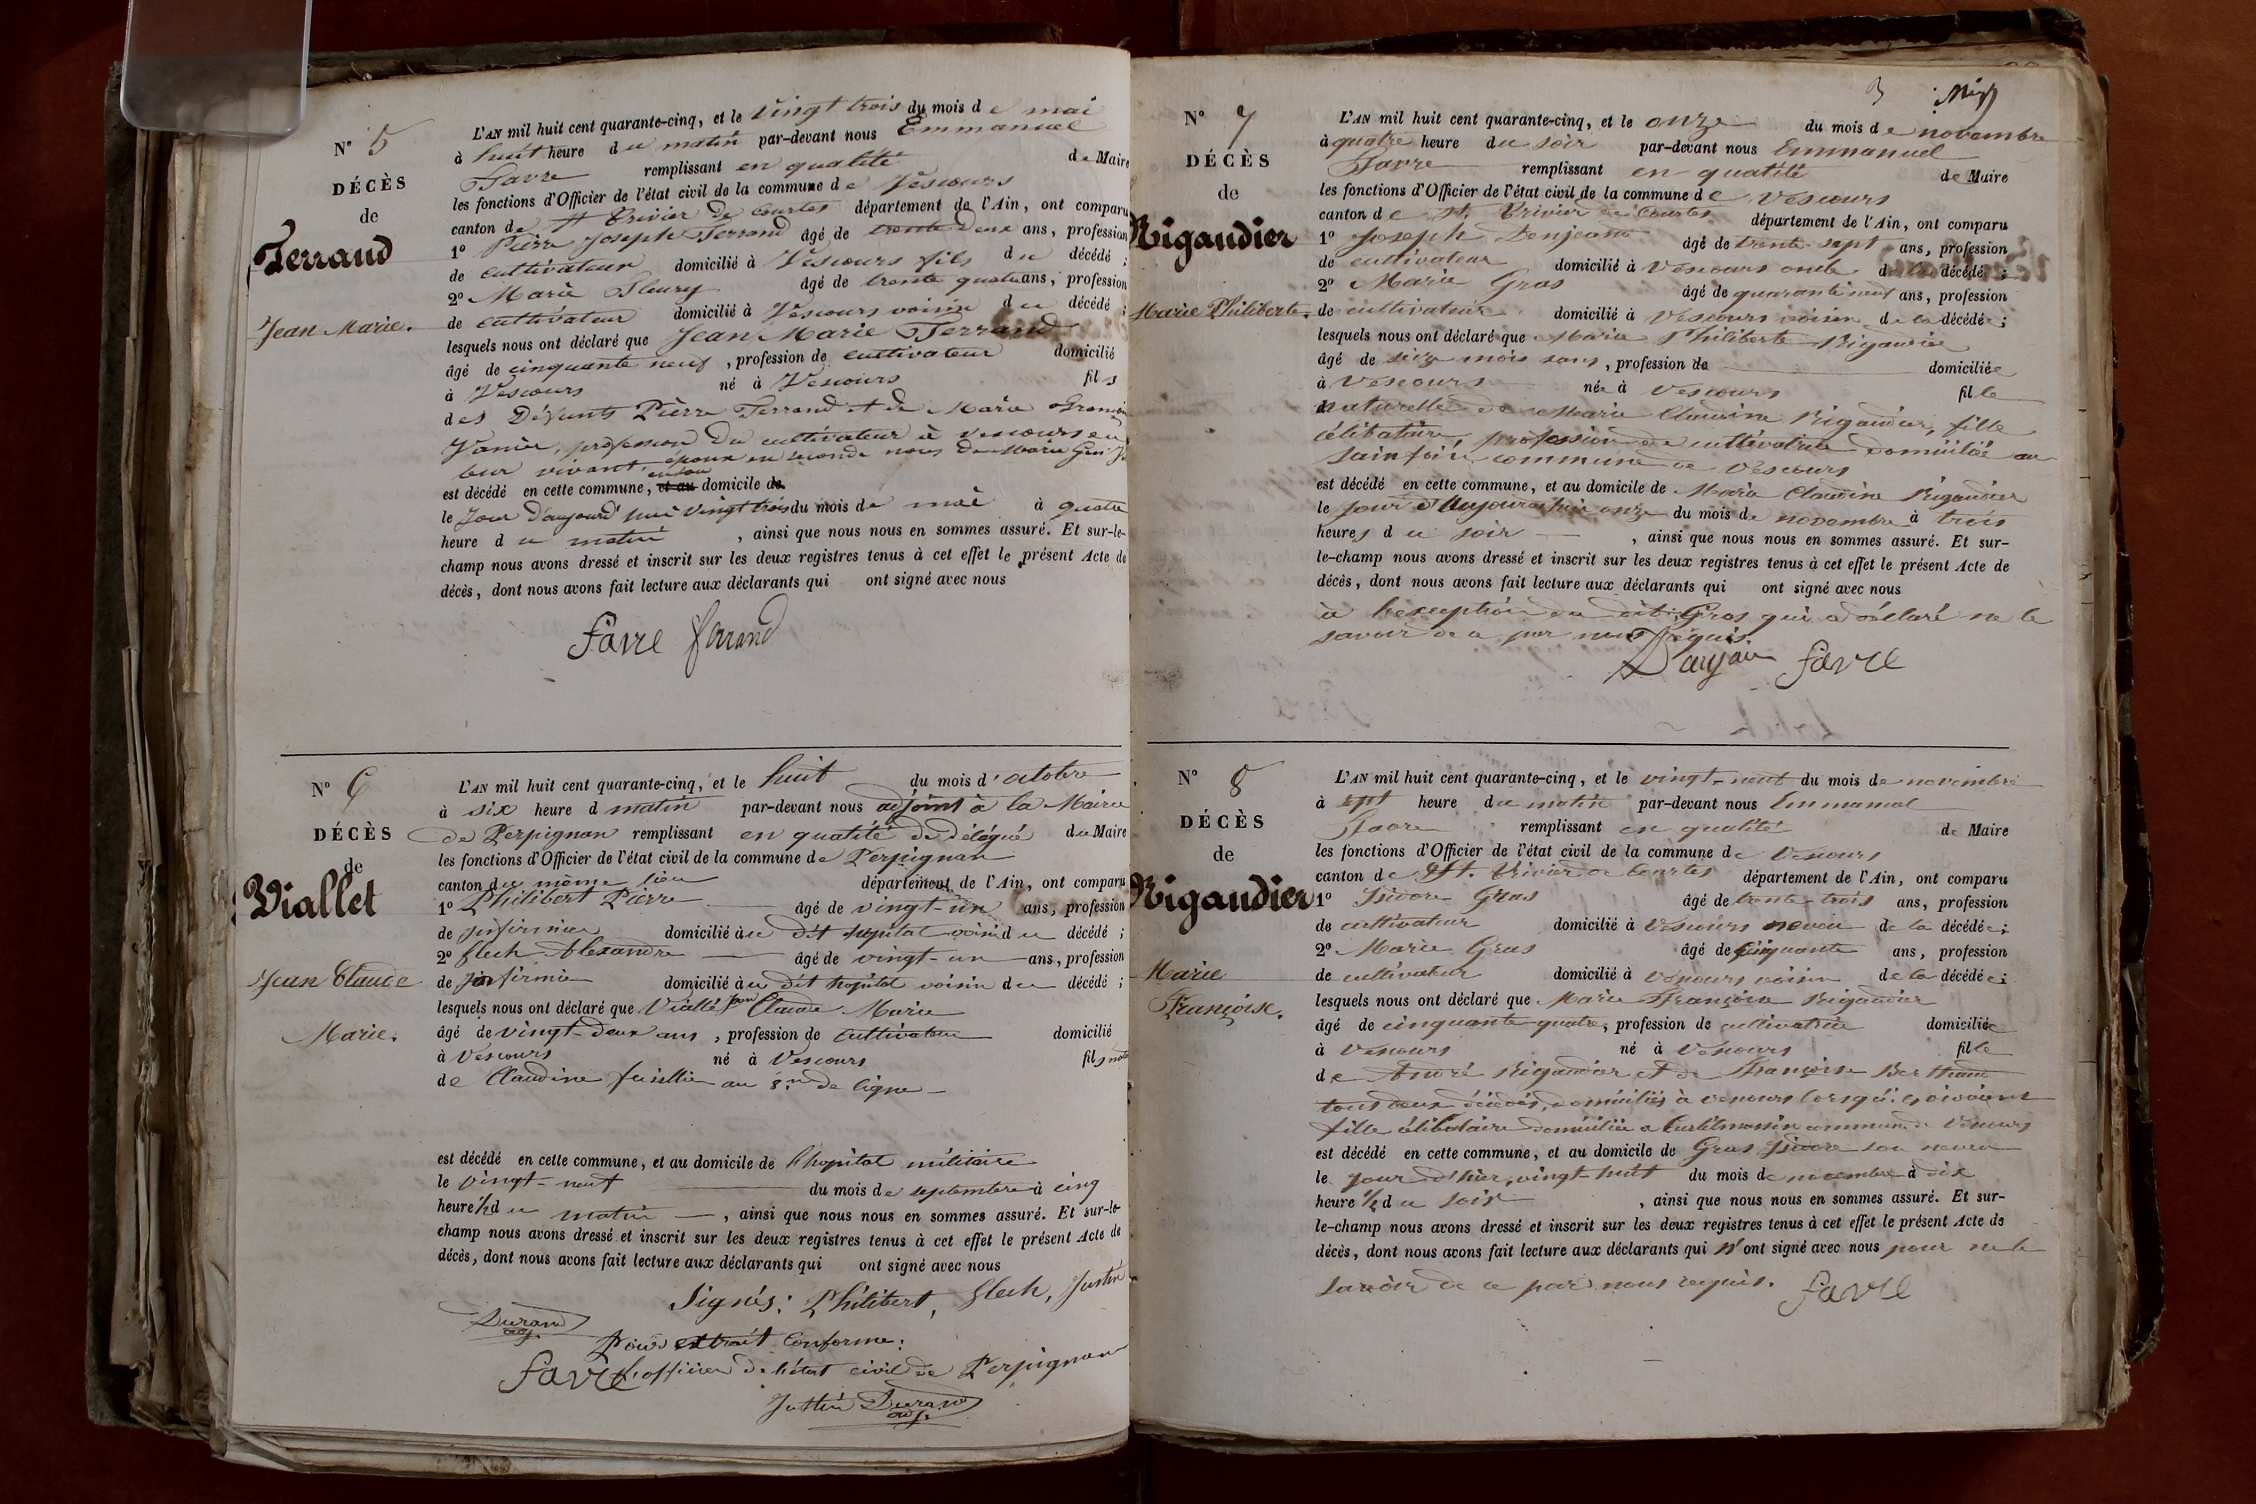 N° 5
DÉCÈS
de
Ferrand
Jean Marie.
L'AN mil huit cent quarante-cinq, et le vingt trois du mois de mai
à huit heure du matin par-devant nous Emmanuel
Favre remplissant en qualité de Maire
les fonctions d'Officier de l'état civil de la commune de Vescours
canton de St Trivier de Courtes département de l'Ain, ont comparu
1° Pierre Joseph Ferrand âgé de trente deux ans, profession
de cultivateur domicilié à Vescours fils du décédé ;
2° Marie Fleury âgé de trente quatre ans, profession
de cultivateur domicilié à Vescours voisin du décédé ;
lesquels nous ont déclaré que Jean Marie Ferrand
âgé de cinquante neuf , profession de cultivateur domicilié
à Vescours né à Vescours fils
des Défunts Pierre Ferrand et de Marie
profession du cultivateur à Vescours en
leur vivant, époux en seconde noces de Marie
est décédé en cette commune, en son et au domicile de
le jour d'aujourd'hui vingt trois du mois de mai à quatre
heure du matin , ainsi que nous nous en sommes assuré. Et sur-le-
champ nous avons dressé et inscrit sur les deux registres tenus à cet effet le présent Acte de
décès, dont nous avons fait lecture aux déclarants qui ont signé avec nous
favre ferrand
N° 6
DÉCÈS
de
Viallet
Jean Claude
Marie.
L'AN mil huit cent quarante-cinq, et le huit du mois d'octobre
à six heure d matin par-devant nous adjoint à la Mairie
de Perpignan remplissant en qualité de délégué du Maire
les fonctions d'Officier de l'état civil de la commune de Perpignan
canton du même lieu département de l'Ain, ont comparu
1° Philibert Pierre âgé de vingt-un ans, profession
de infirmier domicilié au dit hopital voisin du décédé ;
2° flech Alexandre âgé de vingt-un ans, profession
de infirmier domicilié au dit hopital voisin du décédé ;
lesquels nous ont déclaré que Viallet Jean Claude Marie
âgé de vingt-deux ans , profession de cultivateur domicilié
à Vescours né à Vescours fils
de Claudine au de ligne
est décédé en cette commune, et au domicile de l'hopital militaire
le vingt-neuf du mois de septembre à cinq
heure 1/2 du matin , ainsi que nous nous en sommes assuré. Et sur-le-
champ nous avons dressé et inscrit sur les deux registres tenus à cet effet le présent Acte de
décès, dont nous avons fait lecture aux déclarants qui ont signé avec nous
Signés: Philibert, flech, Justin
Durand
adj.
Pour extrait Conforme:
favre l'officier de l'état civil de Perpignan
Justin Durand
adj.
3
N° 7
DÉCÈS
de
Rigaudier
Marie Philiberte.
L'AN mil huit cent quarante-cinq, et le onze du mois de novembre
à quatre heure du soir par-devant nous Emmanuel
Favre remplissant en qualité de Maire
les fonctions d'Officier de l'état civil de la commune de Vescours
canton de St. Trivier de Courtes département de l'Ain, ont comparu
1° Joseph Donjean âgé de trente-sept ans, profession
de cultivateur domicilié à Vescours oncle de la décédée ;
2° Marie Gras âgé de quarante neuf ans, profession
de cultivateur domicilié à Vescours voisin de la décédée ;
lesquels nous ont déclaré que Marie Philiberte Rigaudier
âgé de mois , profession de domiciliée
à Vescours née à Vescours fille
naturelle de Marie Claudine Rigaudier, fille
célibataire, profession de cultivatrice domiciliée au
Sainfoin commune de Vescours
est décédé en cette commune, et au domicile de Marie Claudine Rigaudier
le jour d'Aujourd'hui onze du mois de novembre à trois
heures du soir , ainsi que nous nous en sommes assuré. Et sur-
le-champ nous avons dressé et inscrit sur les deux registres tenus à cet effet le présent Acte de
décès, dont nous avons fait lecture aux déclarants qui ont signé avec nous
à l'exception du dit Gras qui a déclaré ne le
savoir de ce par nous requis.
favre
N° 8
DÉCÈS
de
Rigaudier
Marie
Françoise.
L'AN mil huit cent quarante-cinq, et le vingt-neuf du mois de novembre
à sept heure du matin par-devant nous Emmanuel
Favre remplissant en qualité de Maire
les fonctions d'Officier de l'état civil de la commune de Vescours
canton de St. Trivier de Courtes département de l'Ain, ont comparu
1° Isidore Gras âgé de trente-trois ans, profession
de cultivateur domicilié à Vescours neveu de la décédée ;
2° Marie Gras âgé de cinquante ans, profession
de cultivateur domicilié à Vescours voisin de la décédée ;
lesquels nous ont déclaré que Marie Françoise Rigaudier
âgé de cinquante quatre, profession de cultivatrice domiciliée
à Vescours né à Vescours fille
de André Rigaudier et de Françoise Berthaud
tous deux décédés, domiciliés à Vescours lorsqu'ils vivaient
fille célibataire domiciliée a commune de Vescours
est décédé en cette commune, et au domicile de Gras Isidore son neveu
le jour d'hier, vingt-huit du mois de novembre à dix
heure 1/2 du soir , ainsi que nous nous en sommes assuré. Et sur-
le-champ nous avons dressé et inscrit sur les deux registres tenus à cet effet le présent Acte de
décès, dont nous avons fait lecture aux déclarants qui n'ont signé avec nous pour ne le
savoir de ce par nous requis. favre